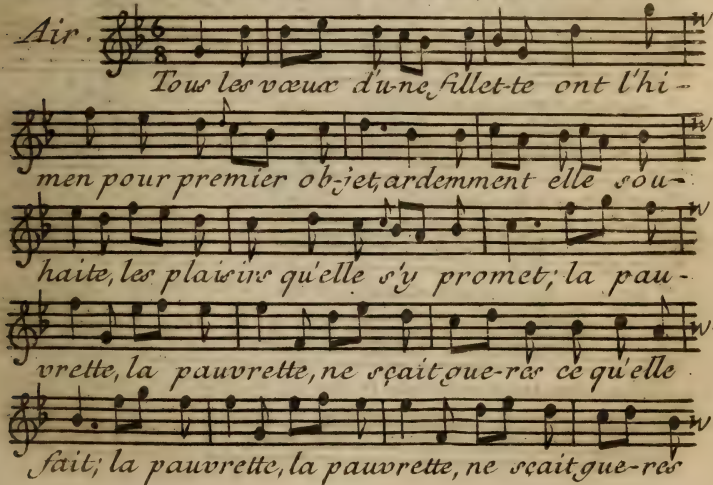 Air.
6
8
Tous les vœux d'u-ne fillet-te ont l'hi-
men pour premier ob-jet, ardemment elle sou-
haite, les plaisirs qu'elle s'y promet; la pau-
vrette, la pauvrette, ne sçait gue-res ce qu'elle
fait; la pauvrette, la pauvrette, ne sçait gue-res